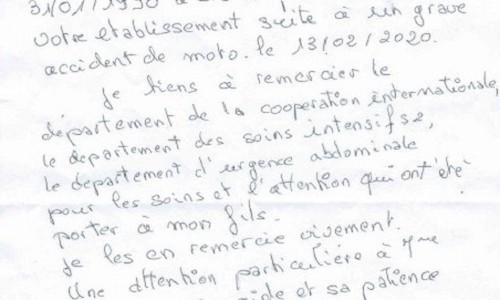 31/01/1990 à
votre etablissement suite à un grave
accident de moto. le 13/02/2020.
Je tiens à remercier le
département de la cooperation internationale,
le departement des soins intensifs 2,
le departement d'urgence abdominale
pour les soins et l'attention qui ont été
porter à mon fils.
Je les en remercie vivement.
Une attention particulière à Mme
et sa patience